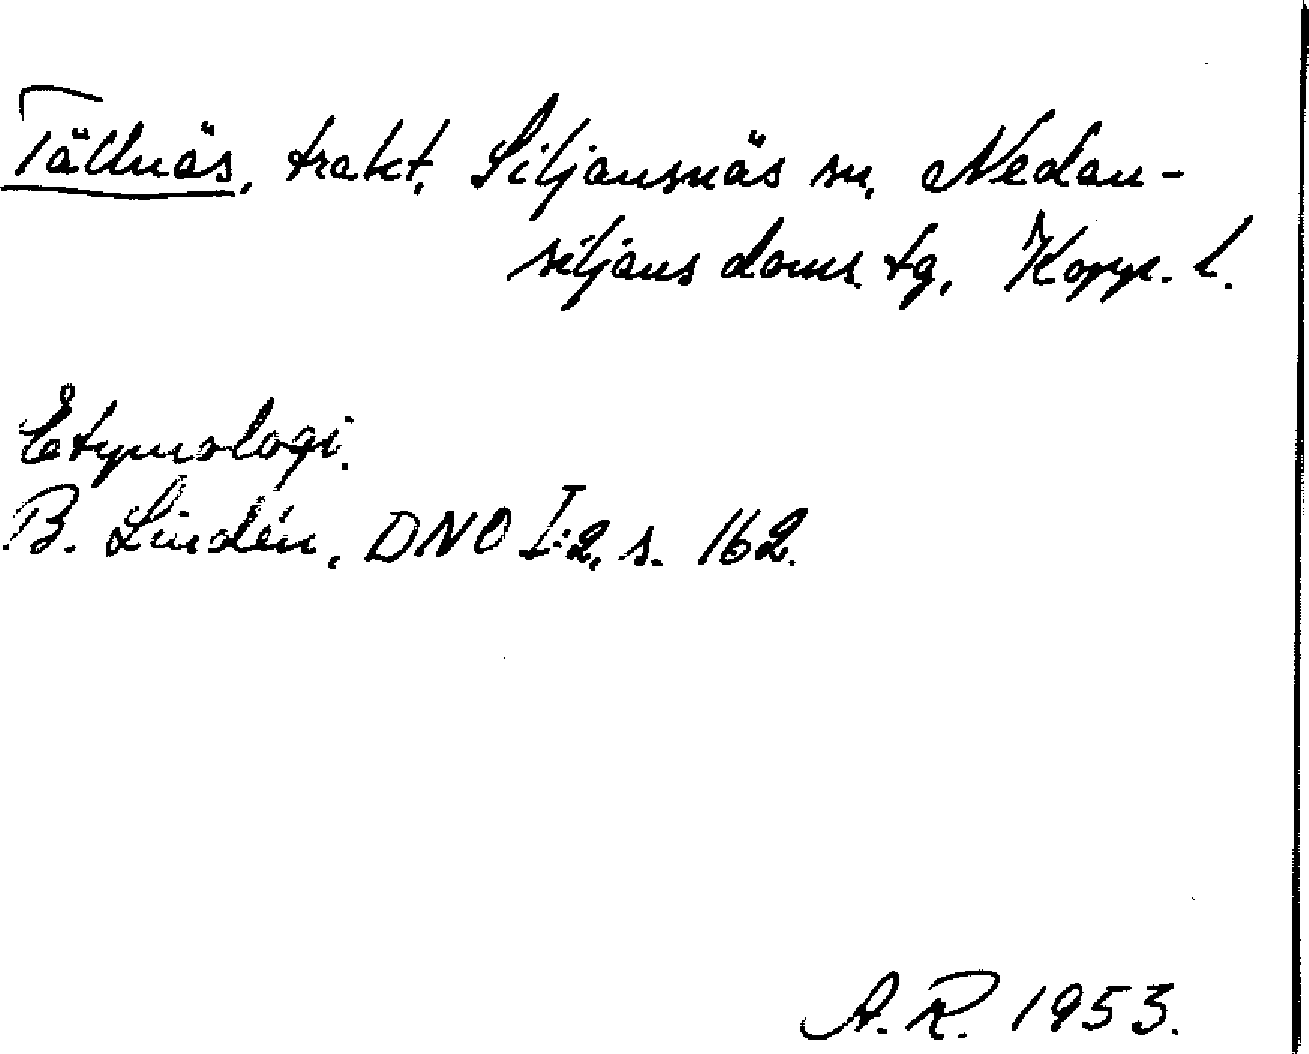 Tällnäs, trakt, Siljansnäs sn, Nedan-
siljans doms. tg, Kopp. l.
Etymologi.
B. Lindén, DNO I:2, s. 162.
A.R. 1953.